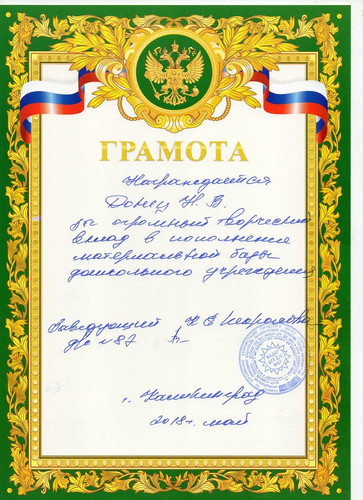 ГРАМОТА
Награждается
Донец Н. В.
за огромный творческий
вклад в пополнение
материальной базы
дошкольного учреждения
Заведующий Н Е
д/с №87
г. Калининград
2018г. май